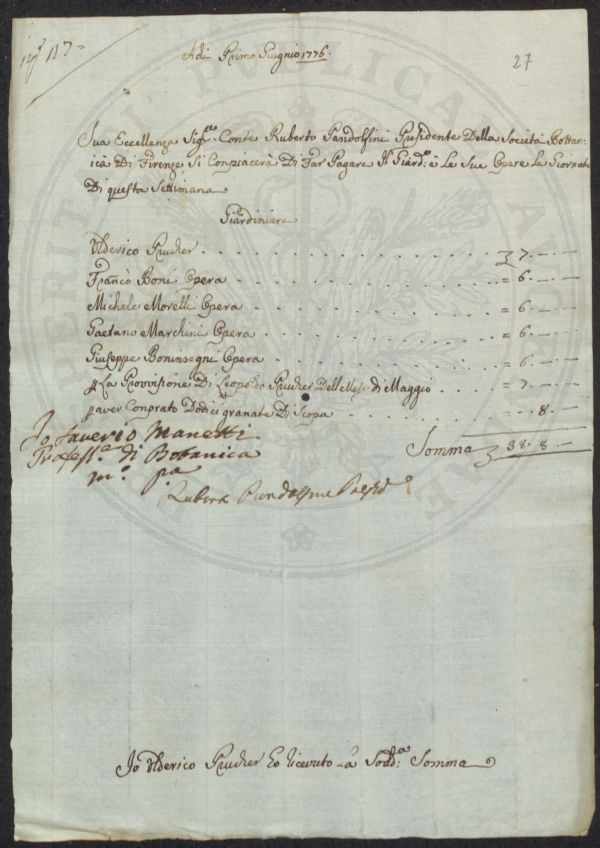 Adi Primo Giugnio 1776.
27
Sua Eccellenza Sigre. Conte Ruberto Pandolfini Presidente Della Società Bottan=
icà Di Firenze Si Conpiacerà Di Far Pagare Il Giard.e è Le Sua Opere La Giornate
Di questa Settimana
Giardiniere
Ulderico Prucher . . . . . . . . . . 7. — —
Franco Boni Opera . . . . . . . . . = 6. — —
Michele Morelli Opera . . . . . . . . . = 6. — —
Gaetano Marchini Opera . . . . . . . . . = 6. — —
Giuseppe Boninsegni Opera . . . . . . . . = 6. — —
p La Provvisione Di Leopoldo Prucher Dell Mese di Maggio . . . = 7. — —
paver Conprato Dodici granate Di Scopa . . . . = — . 8. —
Io Saverio Manetti
Profess.e di Botanica
m.o p.a
Somma 38. 8. —
Rubero Pandolfini Presid.e
Io Ulderico Prucher Ho ricevuto la Sodd.a Somma
PUBLICAE